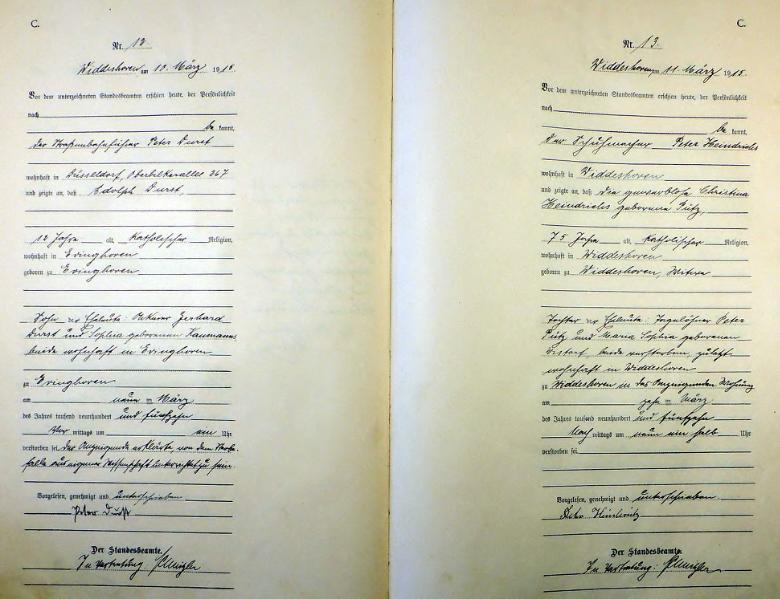 C.
Nr. 12
Widdeshoven am 10. März 1915.
Vor dem unterzeichneten Standesbeamten erschien heute, der Persönlichkeit
nach
be kannt,
der Straßenbahnführer Peter Durst
wohnhaft in Düsseldorf, Oberbilkerallee 267
und zeigte an, daß Adolph Durst,
12 Jahre alt, Katholischer Religion,
wohnhaft in Evinghoven
geboren zu Evinghoven
Sohn der Eheleute: Ackerer Gerhard
Durst und Sophia geborenen Kaumanns
beide wohnhaft in Evinghoven
zu Evinghoven
am neun ten März
des Jahres tausend neunhundert und fünfzehn
Vor mittags um ein Uhr
verstorben sei. Der Anzeigende erklärte, von dem Sterbe-
falle aus eigener Wissenschaft unterrichtet zu sein.
Vorgelesen, genehmigt und unterschrieben
Peter Durst
Der Standesbeamte.
In Vertretung:
C.
Nr. 13
Widdeshoven am 11. März 1915.
Vor dem unterzeichneten Standesbeamten erschien heute, der Persönlichkeit
nach
be kannt,
Der Schuhmacher Peter Heindrichs
wohnhaft in Widdeshoven
und zeigte an, daß die gewerblose Christina
Heindrichs geborene Pütz,
75 Jahre alt, Katholischer Religion,
wohnhaft in Widdeshoven
geboren zu Widdeshoven, Witwe
Tochter der Eheleute: Tagelöhner Peter
Pütz und Maria Sophia geborenen
beide verstorben, zuletzt
wohnhaft in Widdeshoven
zu Widdeshoven in des Anzeigenden Wohnung
am zehn ten März
des Jahres tausend neunhundert und fünfzehn
Nach mittags um neun ein halb Uhr
verstorben sei.
Vorgelesen, genehmigt und unterschrieben
Peter
Der Standesbeamte.
In Vertretung: